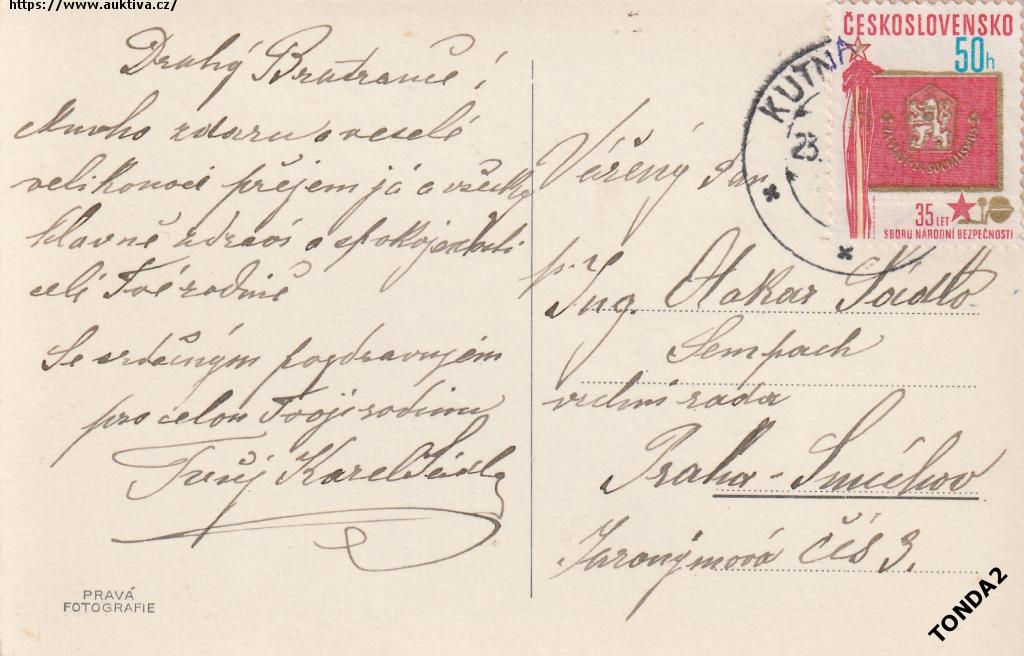 https://www.auktiva.cz/
Drahý Bratranče!
Mnoho zdaru a veselé
velikonoce přejem já a všecky
hlavně zdraví a spokojenosti
celé Tvé rodině
Se srdečným pozdravujem
pro celou Tvoji rodinu
Tvůj Karel Sádlo
PRAVÁ
FOTOGRAFIE
KUTNÁ
23
ČESKOSLOVENSKO
50h
35 LET
SBORU NÁRODNÍ BEZPEČNOSTI
Vážený Pan
p. T.
Ing. Otakar Sádlo
Sempach
vrchní rada
Praha - Smíchov
Jaronýmová čís 3.
TONDA2